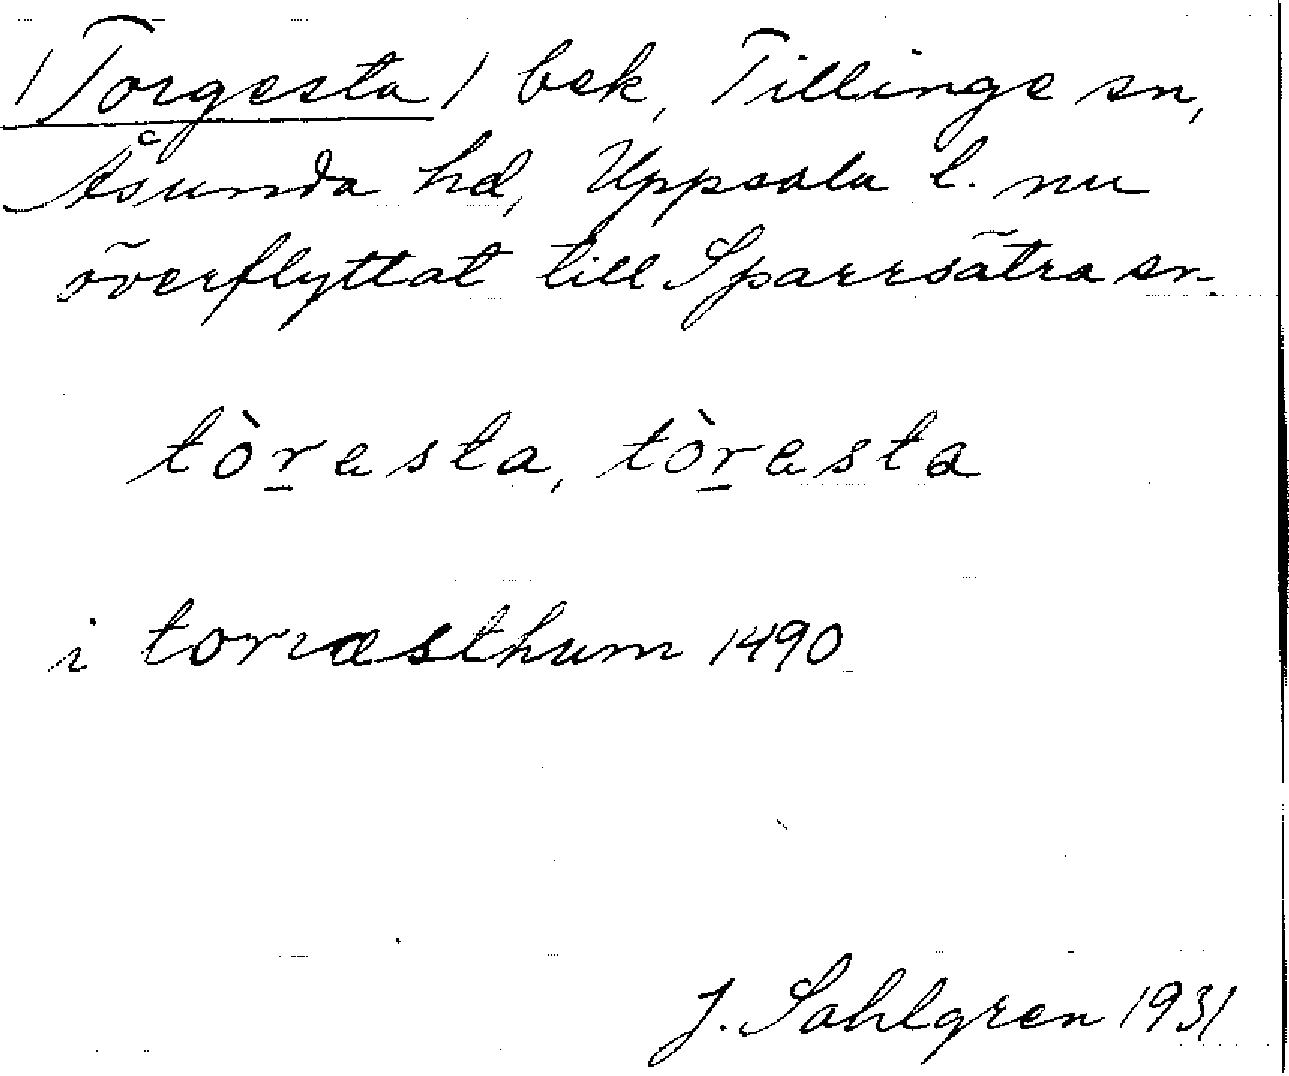 /Torgesta/ bek, Tillinge sn,
Åsunda hd, Uppsala l. nu
överflyttat till Sparrsätra sn.
tòr̲esta, tòr̲esta
i torræsthum 1490
J. Sahlgren 1931